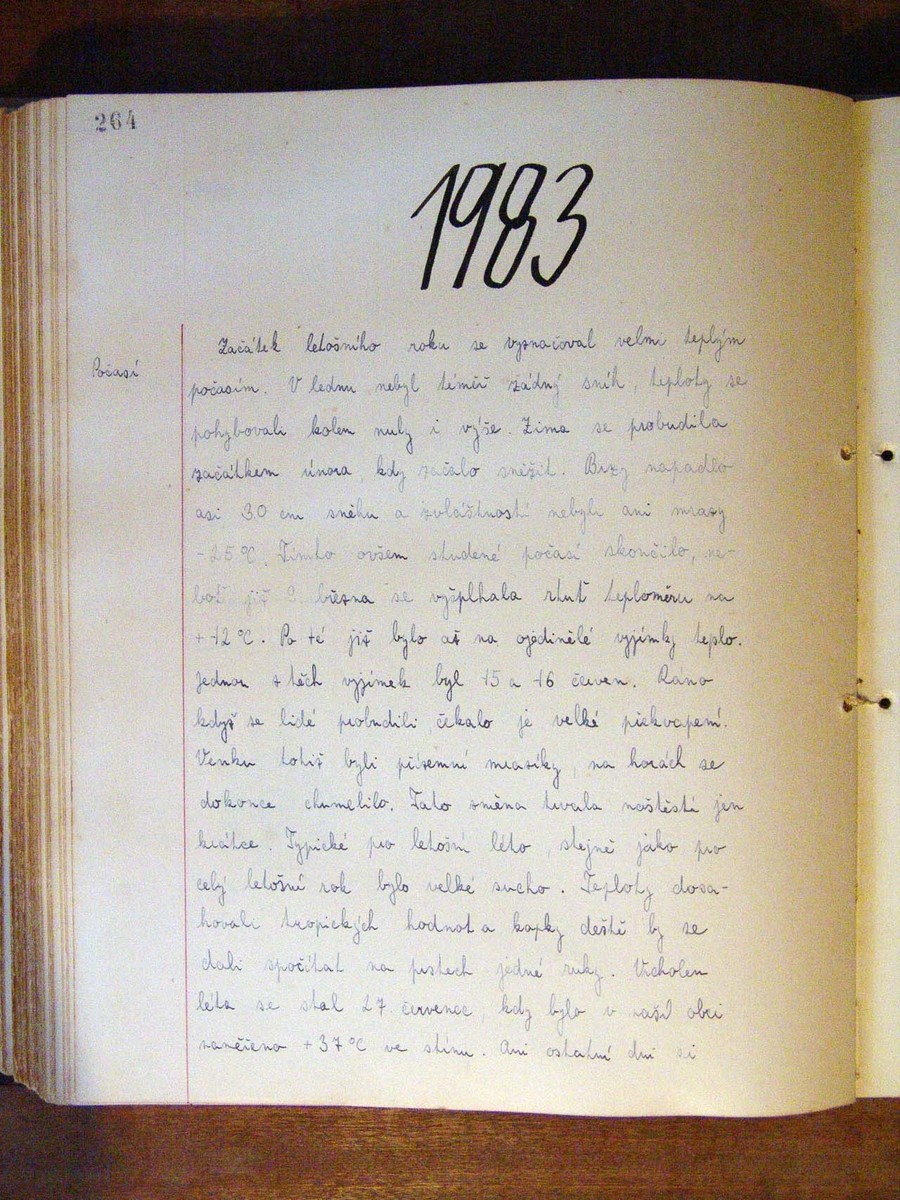 264
1983
Počasí
Začátek letošního roku se vyznačoval velmi teplým
počasím. V lednu nebyl téměř žádný sníh, teploty se
pohybovali kolem nuly i výše. Zima se probudila
začátkem února, kdy začalo sněžit. Brzy napadlo
asi 30 cm sněhu a zvláštností nebyli ani mrazy
-25 °C. Tímto ovšem studené počasí skončilo, ne-
boť již března se vyšplhala rtuť teploměru na
+12 °C. Po té již bylo až na ojedinělé vyjímky teplo.
Jednou z těch vyjímek byl 15 a 16 červen. Ráno
když se lidé probudili, čekalo je velké překvapení.
Venku totiž byli přízemní mrazíky, na horách se
dokonce chumelilo. Tato změna trvala naštěstí jen
krátce. Typické pro letošní léto, stejně jako pro
celý letošní rok bylo velké sucho. Teploty dosa-
hovali tropických hodnot a kapky deště by se
dali spočítat na prstech jedné ruky. Vrcholem
léta se stal 27. červenec, kdy bylo v naší obci
naměřeno +37 °C ve stínu. Ani ostatní dni si